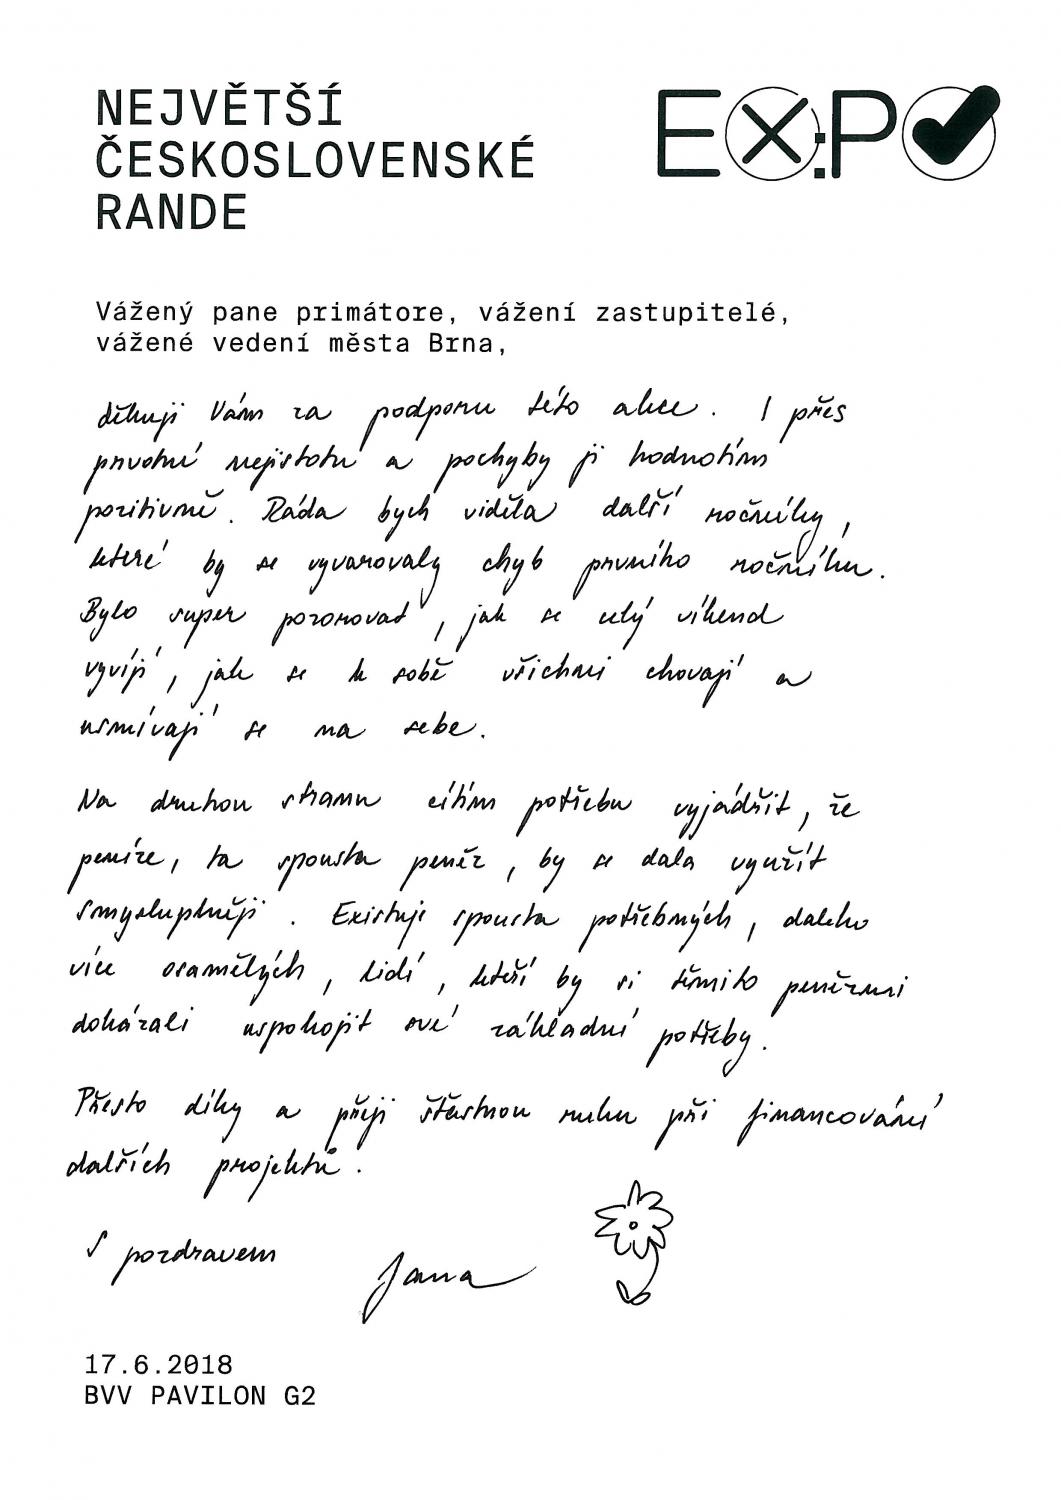 NEJVĚTŠÍ
ČESKOSLOVENSKÉ
RANDE
EX:PO
Vážený pane primátore, vážení zastupitelé,
vážené vedení města Brna,
děkuji Vám za podporu této akce. I přes
prvotní nejistotu a pochyby ji hodnotím
pozitivně. Ráda bych viděla další ročníky,
které by se vyvarovaly chyb prvního ročníku.
Bylo super pozorovat, jak se celý víkend
vyvíjí, jak se k sobě všichni chovají a
usmívají se na sebe.
Na druhou stranu cítím potřebu vyjádřit, že
peníze, ta spousta peněz, by se dala využít
smysluplněji. Existuje spousta potřebných, daleko
více osamělých, lidí, kteří by si těmito penězmi
dokázali uspokojit své základní potřeby.
Přesto díky a přeji šťastnou ruku při financování
dalších projektů.
S pozdravem
Jana
17.6.2018
BVV PAVILON G2